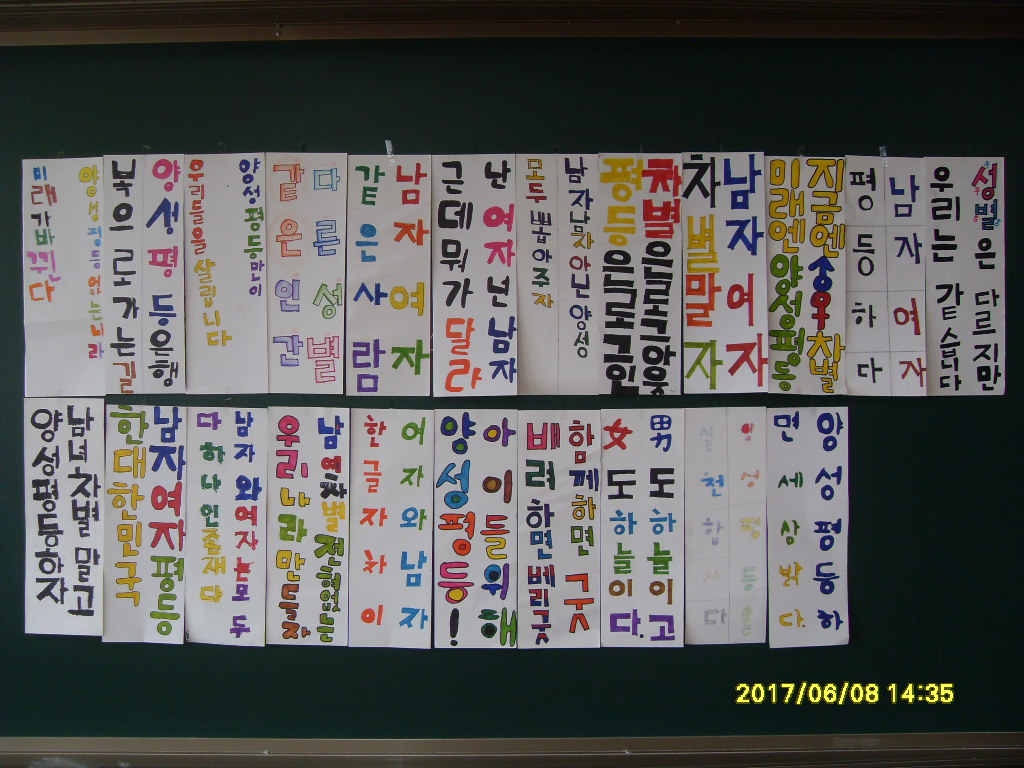 성별은 다르지만
우리는 같습니다
남자 여자
평등하다
지금엔
미래엔 양성평등
남자 여자
차별말자
차별은
평등은
남자남자아닌양성
모두 뽑아주자
난 여자 넌 남자
근데 뭐가 달라
남자 여자
같은 사람
다른 성별
같은 인간
양성평등만이
우리들을 살립니다
양성평등은행
복으로가는길
양성평등 나라
미래가 바뀐다
양성평등하
면 세상 밝다
양성평등
실천합시다
男도 하늘이고
女도 하늘이다.
함께하면 굿
배려하면 베리굿
아이들위해
양성평등!
여자와 남자
한글자차이
남여차별
우리나라만들자
남자와여자는모두
다하나인존재다
남자여자평등
한대한민국
남녀차별말고
양성평등하자
2017/06/08 14:35